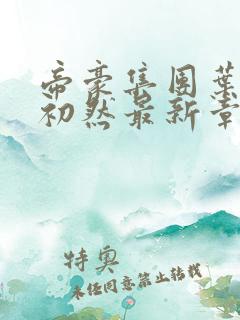 帝豪集团叶
初然最新章
特奥
未经同意禁止转载